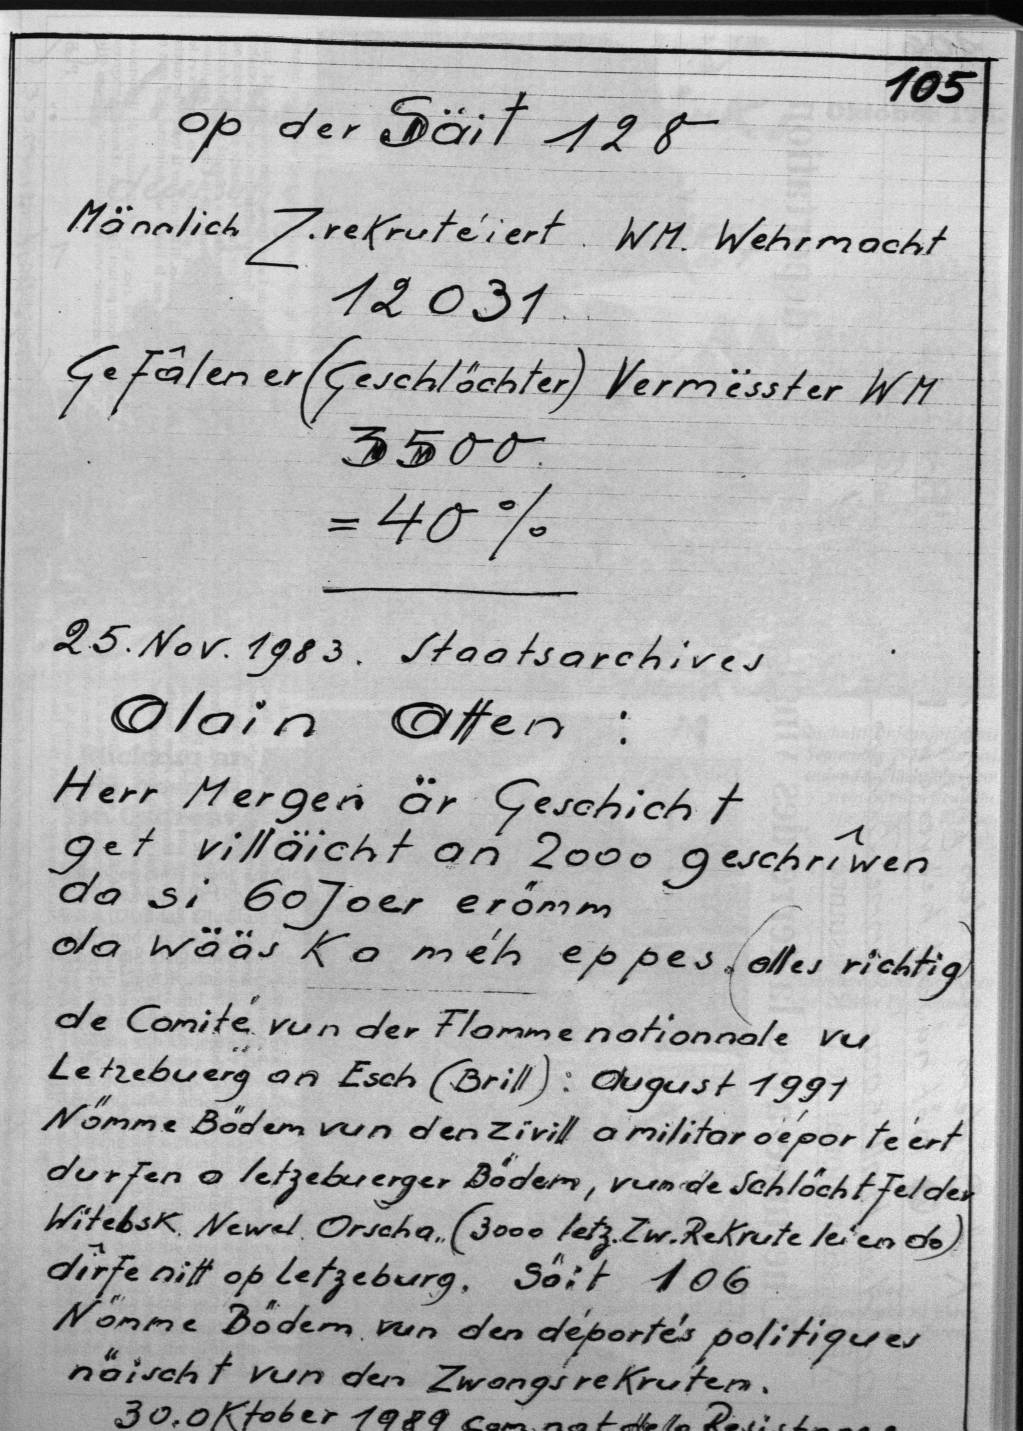 105
op der Säit 128
Männlich Z.rekrutéiert. WM. Wehrmacht
12031.
Gefâlener (Geschlöchter) Vermësster WM
3500.
= 40 %
25. Nov. 1983. Staatsarchives
Alain Atten :
Herr Mergen är Geschicht
get villäicht an 2000 geschrîwen
da si 60 Joer erömm
da wääs Ka méh eppes. (alles richtig)
de Comité vun der Flamme nationnale vu
Letzebuerg an Esch (Brill) : August 1991
Nömme Bödem vun den zivill a militar déportéert
durfen a letzebuerger Bödem, vun de Schlöchtfelder
Witebsk. Newel. Orscha.. (3000 letz. Zw. Rekrute leien do)
dîrfe nitt op Letzeburg. Söit 106
Nömme Bödem vun den déportés politiques
näischt vun den Zwangsrekruten.
30. Oktober 1989